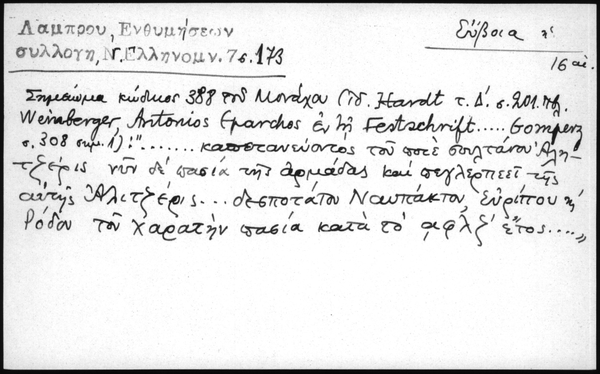 Λάμπρου, Ἐνθυμήσεων
συλλογή, Ν. Ἑλληνομν. 7 σ. 173
Εὔβοια
16 αἰ.
Σημείωμα κώδικος 388 τοῦ Μονάχου (ἰδ. Hardt τ. Δ'. σ. 201. πβ.
Weinberger, Antonios Eparchos ἐν τῇ Festschrift..... Gomperz
σ. 308 σημ. 1): "....... καπετανεύοντος τοῦ ποτὲ σουλτάνου Ἀλη-
τζέρις νῦν δὲ πασία τῆς ἀρμάδας καὶ πεγλερπεεῖ τῆς
αὐτῆς Ἀλιτζέρις... δεσποτάτου Ναυπάκτου, Εὐρίπου κ'
Ῥόδου τοῦ Χαρατὴν πασία κατὰ τὸ αφλζ' ἔτος....."